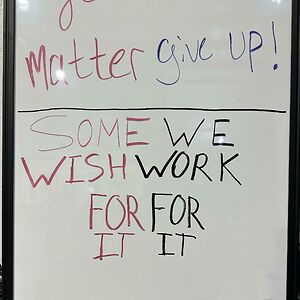 matter give up!
SOME WE
WISH WORK
FOR FOR
IT IT